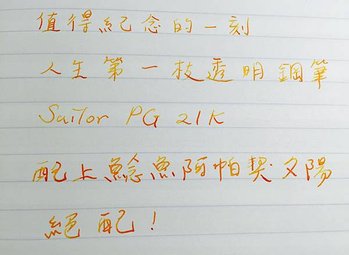 值得紀念的一刻
人生第一枝透明鋼筆
Sailor PG 21K
配上鯰魚阿帕契夕陽
絕配！